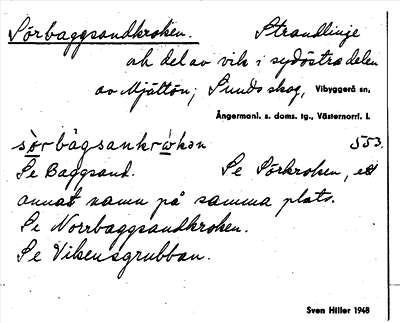 Sörbaggsandkroken. Strandlinje
ock del av vik i sydöstra delen
av Mjältön; Sunds skog, Vibyggerå sn,
Ångermanl. s. doms. tg., Västernorrl. l.
sö̀rbàgsankrṷ̀kən 553.
Se Baggsand. Se Sörkroken, ett
annat namn på samma plats.
Se Norrbaggsandkroken.
Se Vikensgrubban.
Sven Hiller 1948